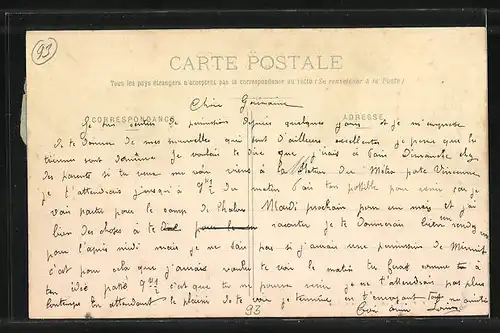 93
CARTE POSTALE
Tous les pays étrangers n'acceptent pas la correspondance au recto (Se renseigner à la Poste)
Chère Germaine
CORRESPONDANCE
ADRESSE
Je suis rentré de permission depuis quelques jours et je m'empresse
de te donner de mes nouvelles qui sont d'ailleurs excellentes je pense que les
tiennes sont de même Je voulais te dire que j'irais à Paris Dimanche chez
des parents si tu veux me voir viens à la station du Métro porte Vincennes
je t'attendrai jusqu'à 9h 1/2 du matin fais ton possible pour venir car je
vais partir pour le camp de Chalons Mardi prochain pour un mois et j'ai
bien des choses à te raconter je te donnerais bien rendez vous
pour l'après midi mais je ne sais pas si j'aurais une permission de Minuit
c'est pour cela que j'aimerais te voir le matin tu feras comme à
ton idée passé 9h 1/2 c'est que tu ne pourras venir je ne t'attendrai pas plus
longtemps En attendant le plaisir de te voir je termine en t'envoyant
Ton ami Louis
93